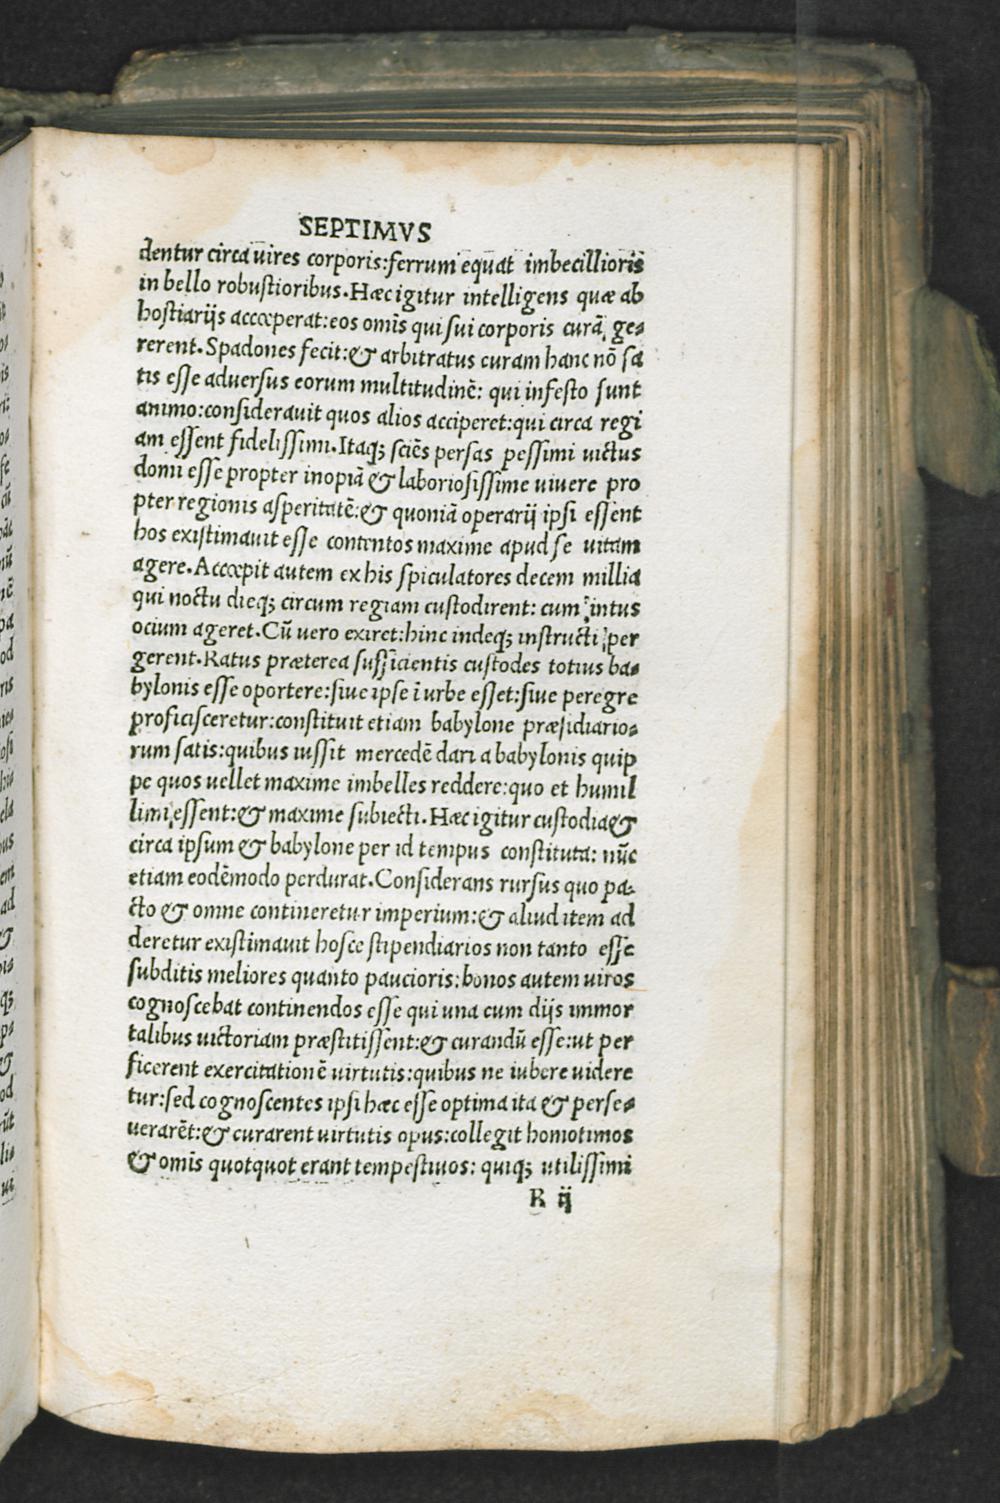 SEPTIMVS
dentur circa uires corporis:ferrum equat imbecillioris
in bello robustioribus.Hæc igitur intelligens quæ ab
hostiariis accœperat:eos omīs qui sui corporis curā ge-
rerent.Spadones fecit:& arbitratus curam hanc nō sa
tis esse aduersus eorum multitudinē: qui infesto sunt
animo:considerauit quos alios acciperet:qui circa regi
am essent fidelissimi.Itaq; sciēs persas pessimi uictus
domi esse propter inopiā & laboriosissime uiuere pro
pter regionis asperitatē:& quoniā operarij ipsi essent
hos existimauit esse contentos maxime apud se uitam
agere.Accœpit autem ex his spiculatores decem millia
qui noctu dieq; circum regiam custodirent: cum intus
ocium ageret.Cū uero exiret:hinc indeq; instructi per
gerent.Ratus præterea sufficientis custodes totius ba-
bylonis esse oportere:siue ipse ī urbe esset:siue peregre
proficisceretur:constituit etiam babylone præsidiario-
rum satis:quibus iussit mercedē dari a babylonis quip
pe quos uellet maxime imbelles reddere:quo et humil
limi essent:& maxime subiecti.Hæc igitur custodia &
circa ipsum & babylone per id tempus constituta: nūc
etiam eodēmodo perdurat.Considerans rursus quo pa-
cto & omne contineretur imperium:& aliud item ad
deretur existimauit hosce stipendiarios non tanto esse
subditis meliores quanto paucioris:bonos autem uiros
cognoscebat continendos esse qui una cum diis immor
talibus uictoriam præstitissent:& curandū esse:ut per
ficerent exercitationē uirtutis:quibus ne iubere uidere
tur:sed cognoscentes ipsi hæc esse optima ita & perse-
uerarēt:& curarent uirtutis opus:collegit homotimos
& omīs quotquot erant tempestiuos: quiq; utilissimi
R ij